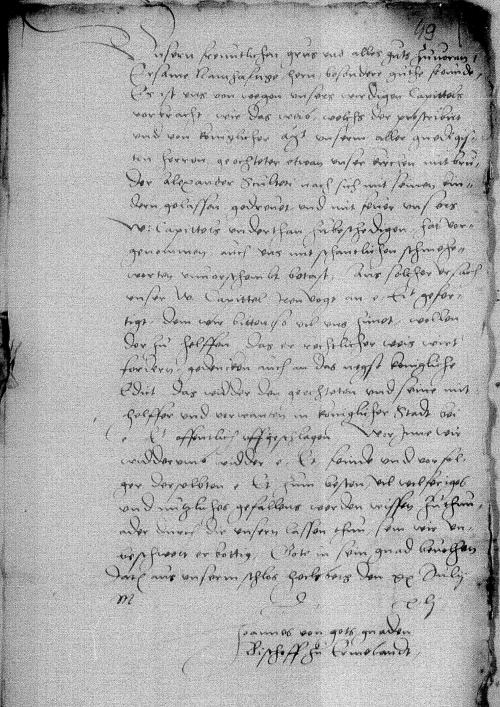 49
Unsern freuntlichen grus und alles guts zuvoran
Ersame Namhafftige hern besondere gutte freunde
Es ist uns von wegen unsers wirdigen Capittels
vorbracht wie das weib, welchs der proscribirt
und von koniglicher Mt unserm aller gnedigs-
ten herren geechteter etwan unser kirchen mitbru-
der Alexander Sculteti nach sich mit seinen kin-
dern gelassen gedreuet und mit feuer uns des
W. Capittels underthan zubeschedigen hat vor-
genommen, auch uns mit schentlichen schmehe-
worten unvorschembt betast. Aus solcher ursach
unser W. Capittel von voge an e. Et gefer-
tigt, dem wir bitten so vil uns zimet, wollen
der zu helffen das er rechtlicher weis wirt
fordern, gedencken auch an das negst konigliche
Edict das widder den geechteten und seine mit
helffer und verwanten in koniglicher Stadt bei
e. Et offentlich uffgeschlagen. Wer Inne wir
widderumb widder e. Et feinde und vorfol-
ger derselbten e. Et zum besten vil wilfariges
und nutzliches gefallens werden wissen zuthun
ader durch die unsern lassen thun, sein wir un-
beschwert erbottig, Gote in sein gnad bevolhen
Datum aus unserm schlos heilsberg den xx July
M D xlj
Joannes von gots gnaden
Bischoff zu Ermelandt